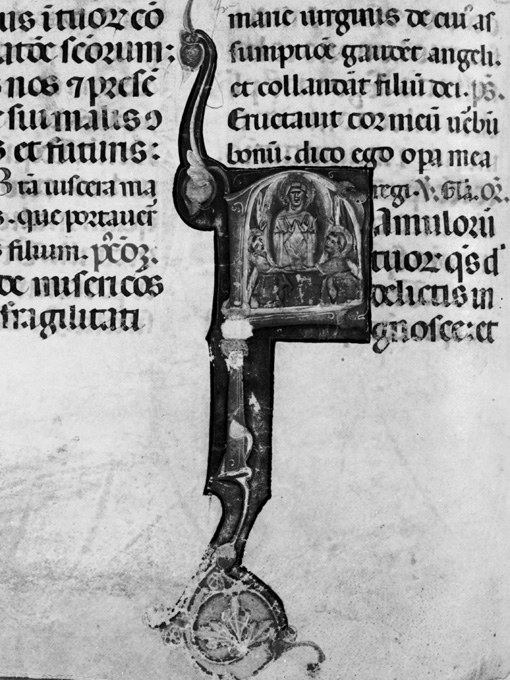 us ītuoꝛ cō
atōe scōrum:
nos ⁊ pꝛesē
sui malis ꝯ
s et futuris:
tā uiscera ma
s. que portauer̄
filium. p̄cōꝫ.
de misericos
fragilitati
marie uirginis de cui᷎ as
sumptiōe gaudēt angeli.
et collaudāt filiū dei. p̄s.
Eructauit cor meū uerbū
bonū. dico ego opa mea
regi. V̄. Glā. Oꝛ̄.
Famulorū
tuoꝛ q̄s d᷎
delictis in
gnosce: et